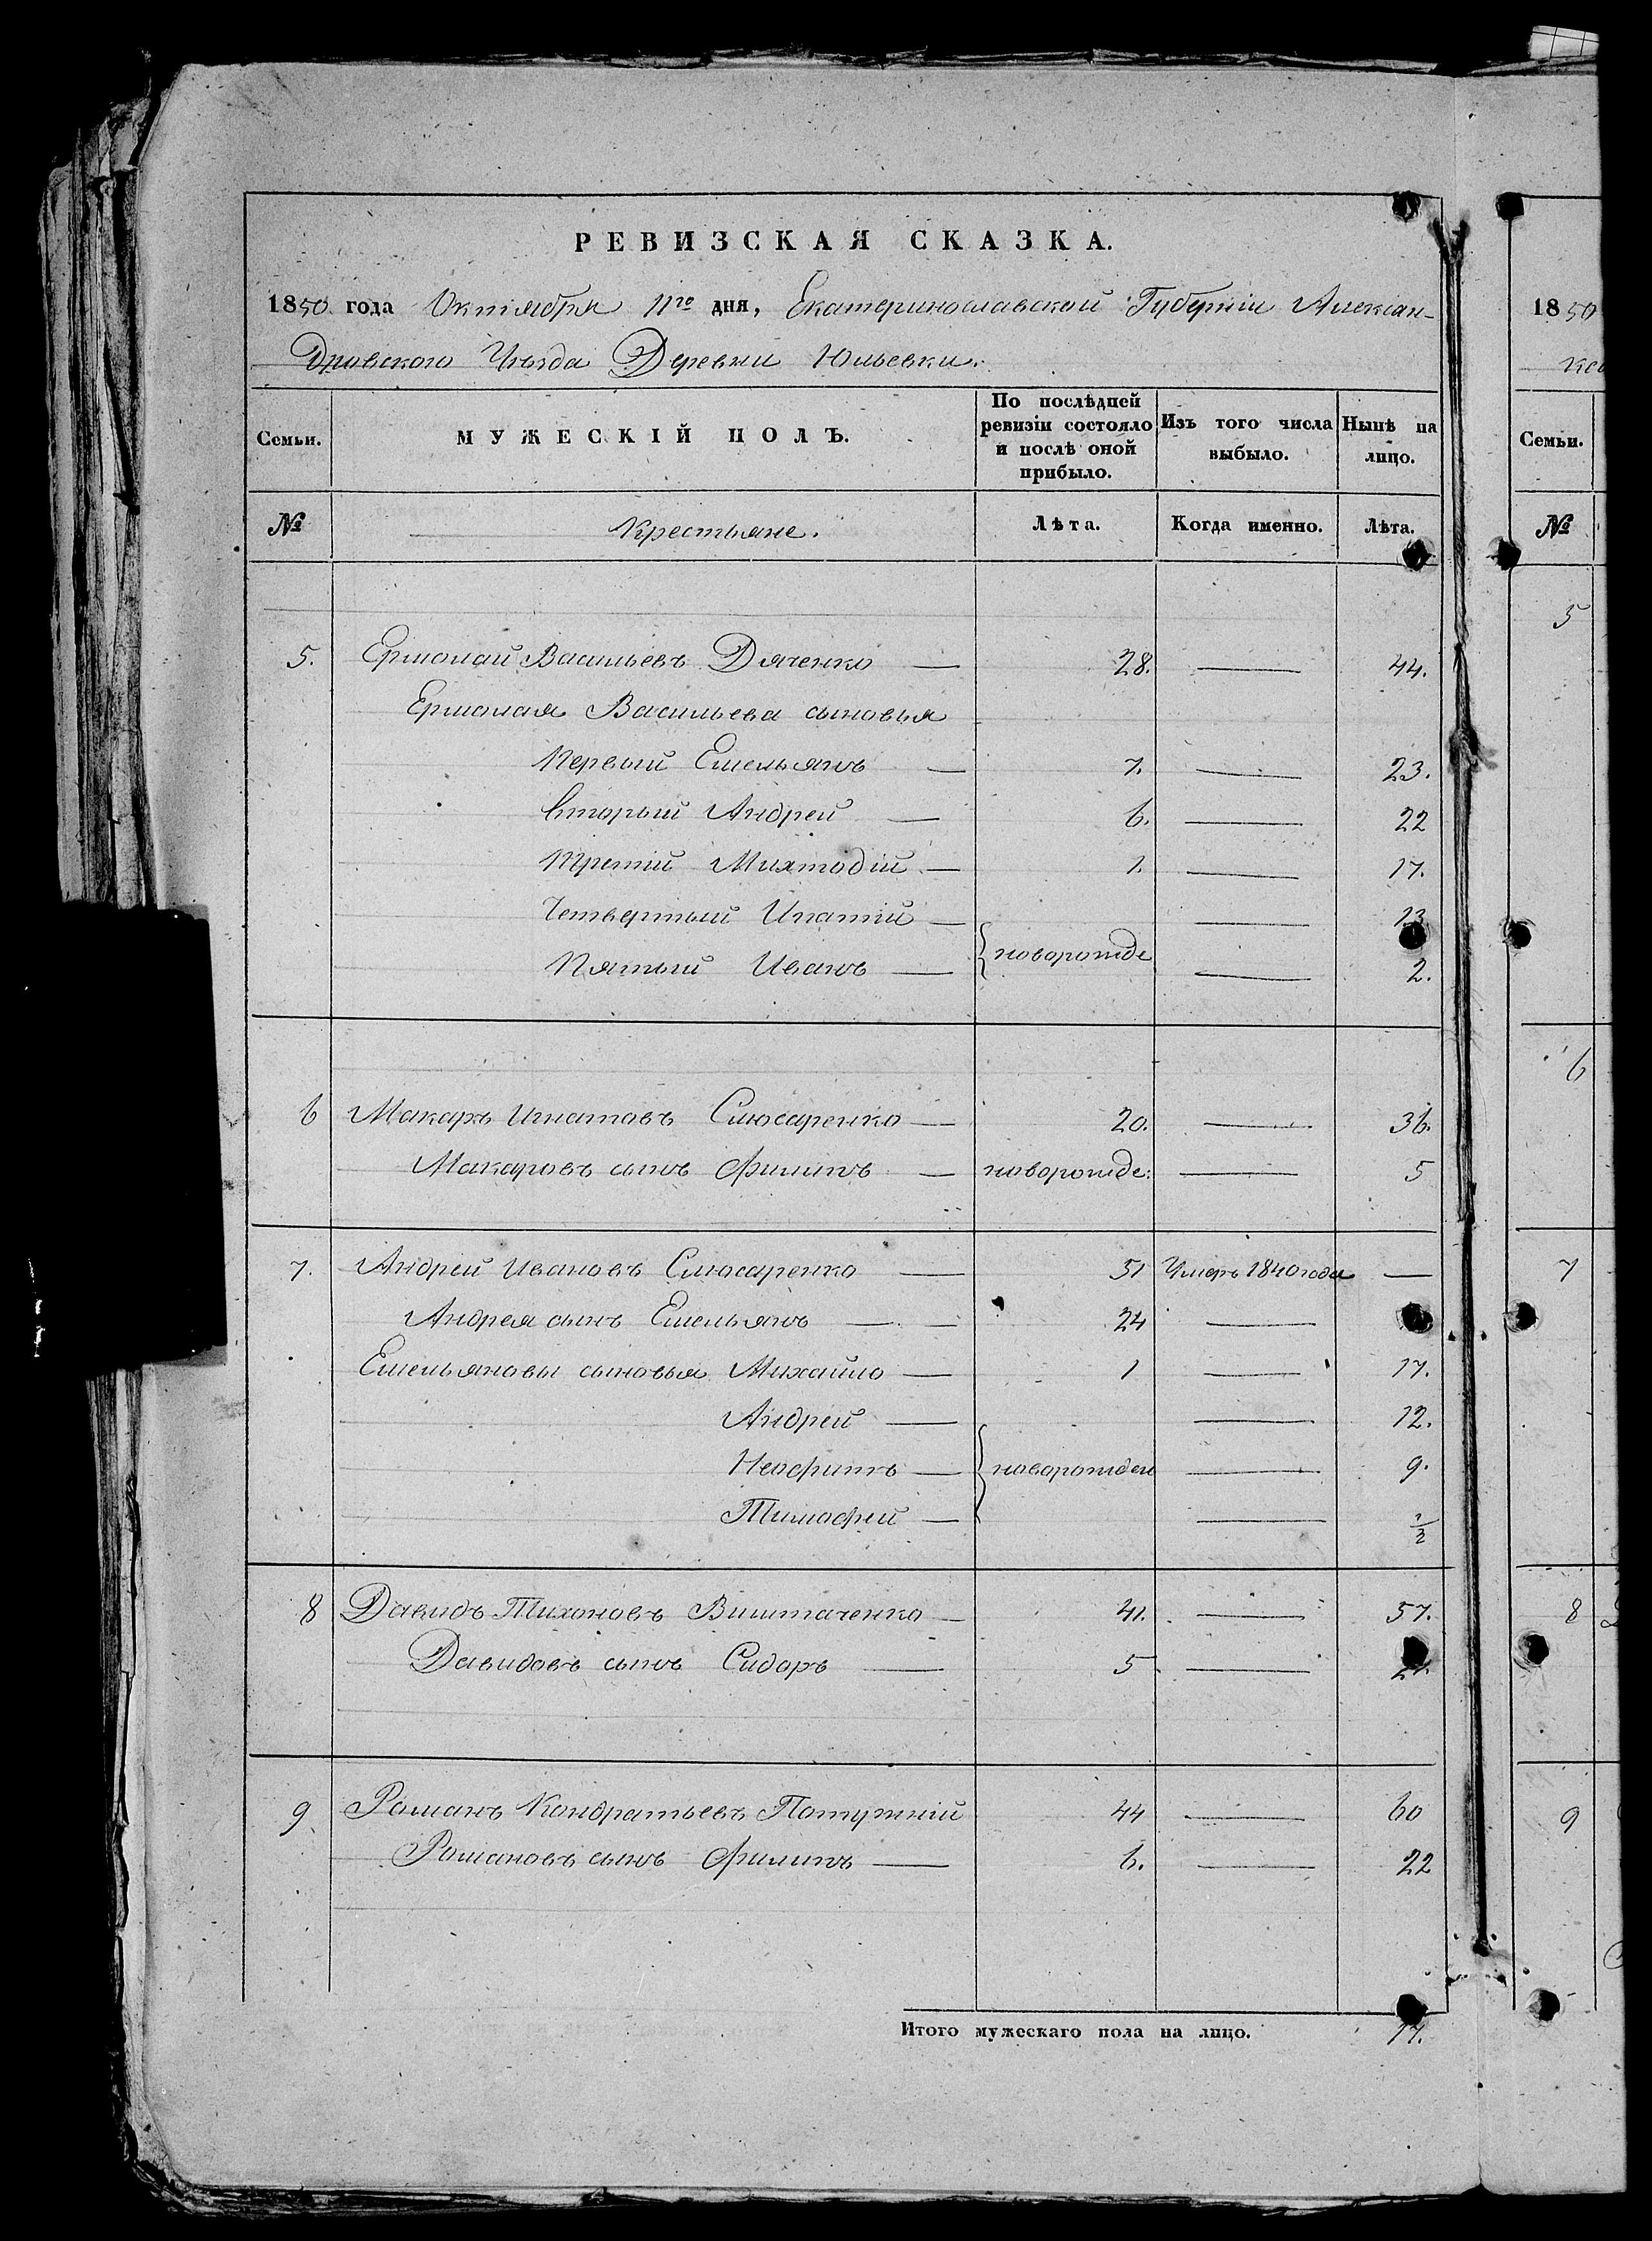 РЕВИЗСКАЯ СКАЗКА.
1850 года Октября 11го дня, Екатеринославской Губерніи Алексан-
дровского Уѣзда Деревни Юльевки.
Семьи. МУЖЕСКІЙ ПОЛЪ. По послѣдней ревизіи состояло и послѣ оной прибыло. Изъ того числа выбыло. Нынѣ на лицо.
№ Крестьяне. Лѣта. Когда именно. Лѣта.
5. Ермолай Васильевъ Дяченко — 28. — 44.
Ермолая Васильева сыновья
Первый Емельянъ — 7. — 23.
Вторый Андрей — 6. — 22
Третій Михтодій — 1. — 17.
Четвертый Ипатій — — 13
Пятый Иванъ — { новорожде — 2.
6 Макаръ Игнатовъ Слюсаренко — 20. — 36.
Макаровъ сынъ Филипъ — новорожде: — 5
7. Андрей Ивановъ Слюсаренко — 51 Умеръ 1840 года —
Андрея сынъ Емельянъ — 24 —
Емельяновы сыновья Михайло — 1 — 17.
Андрей — — 12.
Неофитъ — { новорожден — 9.
Тимофей — — 1/2
8 Давидъ Тихоновъ Виштаченко — 41. — 57.
Давидовъ сынъ Сидоръ — 5 — 21.
9. Романъ Кондратьевъ Потужній 44 — 60
Романовъ сынъ Филипъ — 6. — 22
Итого мужескаго пола на лицо. 17.
1850
Семьи.
№
5
6
7
8
9